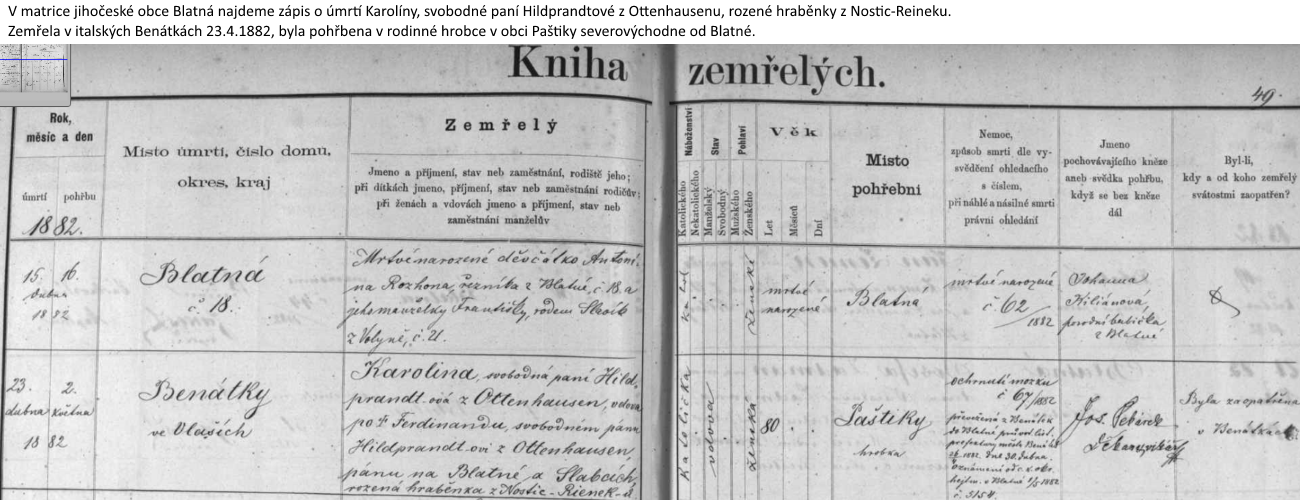 V matrice jihočeské obce Blatná najdeme zápis o úmrtí Karolíny, svobodné paní Hildprandtové z Ottenhausenu, rozené hraběnky z Nostic-Reineku.
Zemřela v italských Benátkách 23.4.1882, byla pohřbena v rodinné hrobce v obci Paštiky severovýchodne od Blatné.
Kniha zemřelých.
49.
Rok,
měsíc a den
úmrtí pohřbu
1882.
Místo úmrtí, číslo domu,
okres, kraj
Zemřelý
Jméno a příjmení, stav neb zaměstnání, rodiště jeho;
při dítkách jméno, příjmení, stav neb zaměstnání rodičův;
při ženách a vdovách jméno a příjmení, stav neb
zaměstnání manželův
Náboženství
Katolického
Nekatolického
Stav
Manželský
Svobodný
Pohlaví
Mužského
Ženského
Věk
Let
Měsíců
Dní
Místo
pohřební
Nemoc,
způsob smrti dle vy-
svědčení ohledacího
s číslem,
při náhlé a násilné smrti
právní ohledání
Jméno
pochovávajícího kněze
aneb svědka pohřbu,
když se bez kněze
dál
Byl-li,
kdy a od koho zemřelý
svátostmi zaopatřen?
15. 16.
dubna
1882
Blatná
č 18.
Mrtvě narozené děvčátko Antoní-
na Rozhona, řezníka z Blatné, č. 18. a
jeho manželky Františky, rodem
z Volyně, č.
kat.
ženské
mrtvě
narozené
Blatná
mrtvě narozené
č 62/1882
Johanna
Kiliánová,
porodní babička
z Blatné
23. 2.
dubna května
1882
Benátky
ve Vlaších
Karolina, svobodná paní Hild,
prandt.ová z Ottenhausen, vdova
po † Ferdinandu, svobodném pánu
Hildprandt.ovi z Ottenhausen,
pánu na Blatné a Slabcích,
rozená hraběnka z Nostic-Rienek-
Katolička
vdova
ženská
80
Paštiky
hrobka
ochrnutí mozku
č 67/1882
převezena z Benátek
do Blatné
Jos.
Byla zaopatřena
v Benátkách